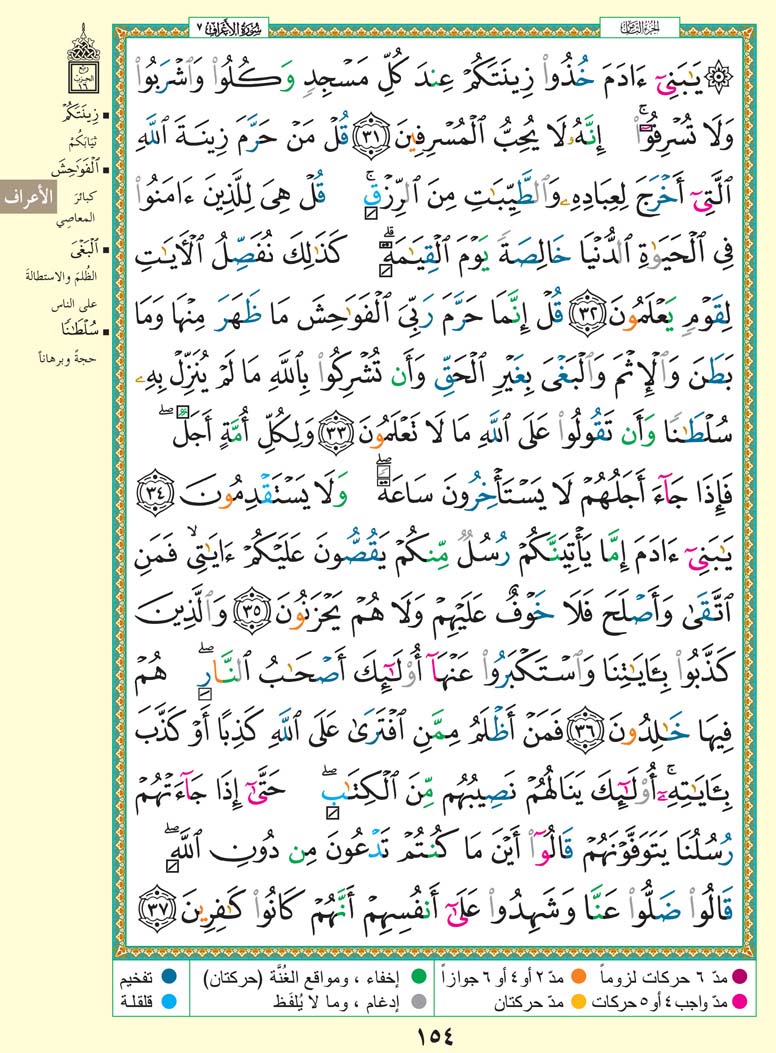 سُورَةُ الأَعۡرَافِ ٧
الجزء الثامن
۞ يَٰبَنِيٓ ءَادَمَ خُذُواْ زِينَتَكُمۡ عِندَ كُلِّ مَسۡجِدٖ وَكُلُواْ وَٱشۡرَبُواْ
وَلَا تُسۡرِفُوٓاْۚ إِنَّهُۥ لَا يُحِبُّ ٱلۡمُسۡرِفِينَ ٣١ قُلۡ مَنۡ حَرَّمَ زِينَةَ ٱللَّهِ
ٱلَّتِيٓ أَخۡرَجَ لِعِبَادِهِۦ وَٱلطَّيِّبَٰتِ مِنَ ٱلرِّزۡقِۚ قُلۡ هِيَ لِلَّذِينَ ءَامَنُواْ
فِي ٱلۡحَيَوٰةِ ٱلدُّنۡيَا خَالِصَةٗ يَوۡمَ ٱلۡقِيَٰمَةِۗ كَذَٰلِكَ نُفَصِّلُ ٱلۡأٓيَٰتِ
لِقَوۡمٖ يَعۡلَمُونَ ٣٢ قُلۡ إِنَّمَا حَرَّمَ رَبِّيَ ٱلۡفَوَٰحِشَ مَا ظَهَرَ مِنۡهَا وَمَا
بَطَنَ وَٱلۡإِثۡمَ وَٱلۡبَغۡيَ بِغَيۡرِ ٱلۡحَقِّ وَأَن تُشۡرِكُواْ بِٱللَّهِ مَا لَمۡ يُنَزِّلۡ بِهِۦ
سُلۡطَٰنٗا وَأَن تَقُولُواْ عَلَى ٱللَّهِ مَا لَا تَعۡلَمُونَ ٣٣ وَلِكُلِّ أُمَّةٍ أَجَلٞۖ
فَإِذَا جَآءَ أَجَلُهُمۡ لَا يَسۡتَأۡخِرُونَ سَاعَةٗۖ وَلَا يَسۡتَقۡدِمُونَ ٣٤
يَٰبَنِيٓ ءَادَمَ إِمَّا يَأۡتِيَنَّكُمۡ رُسُلٞ مِّنكُمۡ يَقُصُّونَ عَلَيۡكُمۡ ءَايَٰتِي ۙ فَمَنِ
ٱتَّقَىٰ وَأَصۡلَحَ فَلَا خَوۡفٌ عَلَيۡهِمۡ وَلَا هُمۡ يَحۡزَنُونَ ٣٥ وَٱلَّذِينَ
كَذَّبُواْ بِـَٔايَٰتِنَا وَٱسۡتَكۡبَرُواْ عَنۡهَآ أُوْلَٰٓئِكَ أَصۡحَٰبُ ٱلنَّارِۖ هُمۡ
فِيهَا خَٰلِدُونَ ٣٦ فَمَنۡ أَظۡلَمُ مِمَّنِ ٱفۡتَرَىٰ عَلَى ٱللَّهِ كَذِبًا أَوۡ كَذَّبَ
بِـَٔايَٰتِهِۦٓۚ أُوْلَٰٓئِكَ يَنَالُهُمۡ نَصِيبُهُم مِّنَ ٱلۡكِتَٰبِۖ حَتَّىٰٓ إِذَا جَآءَتۡهُمۡ
رُسُلُنَا يَتَوَفَّوۡنَهُمۡ قَالُوٓاْ أَيۡنَ مَا كُنتُمۡ تَدۡعُونَ مِن دُونِ ٱللَّهِۖ
قَالُواْ ضَلُّواْ عَنَّا وَشَهِدُواْ عَلَىٰٓ أَنفُسِهِمۡ أَنَّهُمۡ كَانُواْ كَٰفِرِينَ ٣٧
ربع
الحزب
١٦
▪ زِينَتَكُمۡ
ثِيَابَكُمْ
▪ ٱلۡفَوَٰحِشَ
كبائرَ
المعاصي
▪ ٱلۡبَغۡيَ
الظُلمَ والاستطالةَ
على الناس
▪ سُلۡطَٰنٗا
حجةً وبرهاناً
الأعراف
مدّ ٦ حركات لزوماً
مدّ ٢ أو ٤ أو ٦ جوازاً
إخفاء ، ومواقع الغُنَّة (حركتان)
تفخيم
مدّ واجب ٤ أو ٥ حركات
مدّ حركتان
إدغام ، وما لا يُلفَظ
قلقلة
١٥٤